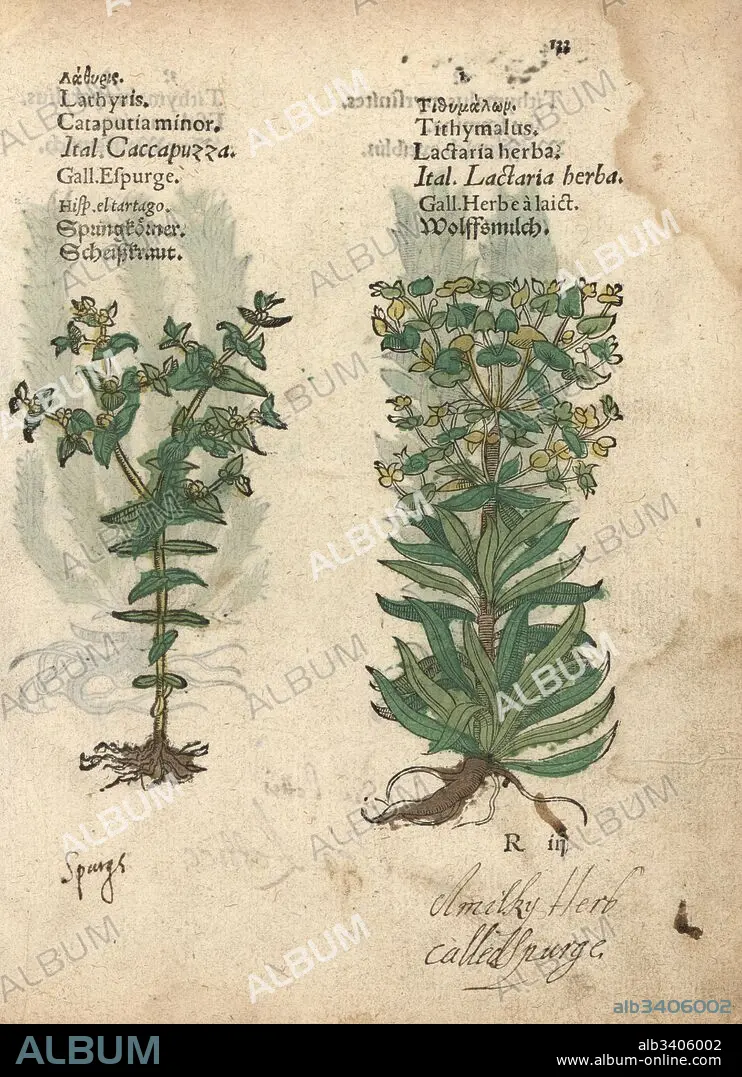 133
Λάθυρις.
Lathyris.
Cataputia minor.
Ital. Caccapuzza.
Gall. Eſpurge.
Hiſp. el tartago.
Springkörner.
Scheißkraut.
Τιθυμάλωμ.
Tithymalus.
Lactaria herba.
Ital. Lactaria herba.
Gall. Herbe à laict.
Wolffsmilch.
R iij
Spurge
A milky Herb
called Spurge.
alb3406002
ALBUM
alb3406002
www.album-online.com